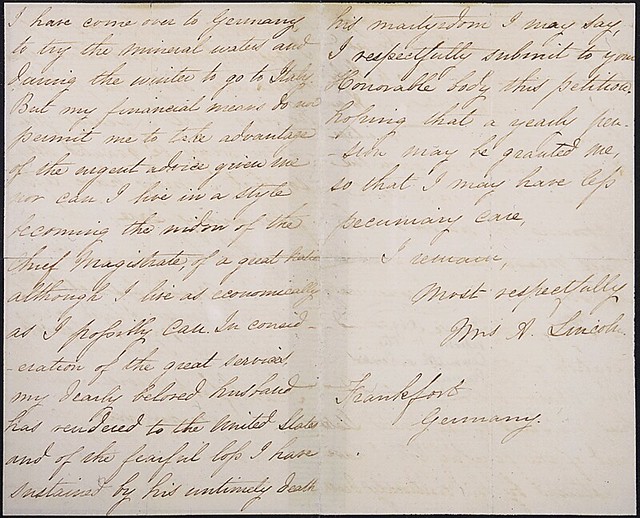 I have come over to Germany
to try the mineral water and
during the winter to go to Italy.
But my financial means do not
permit me to take advantage
of the urgent advice given me
nor can I live in a style
becoming the widow of the
Chief Magistrate, of a great Nation
although I live as economically
as I possibly can. In consid-
-eration of the great services
my dearly beloved husband
has rendered to the United States
and of the fearful loss I have
sustained by his untimely death
his martyrdom I may say,
I respectfully submit to your
Honorable body this petition
hoping that a yearly pen-
-sion may be granted me,
so that I may have less
pecuniary care,
I remain,
Most respectfully
Mrs A. Lincoln
Frankfort
Germany.